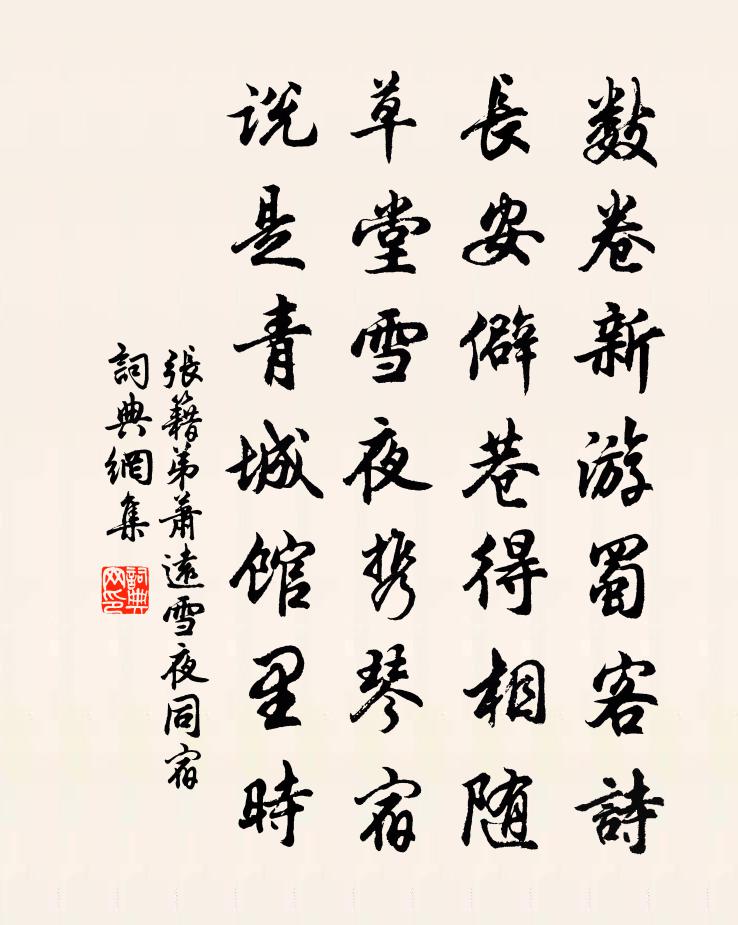 数卷新游蜀客詩
長安僻巷得相随
草堂雪夜携琴宿
说是青城馆里時
張籍弟萧遠雪夜同宿
詞典網集
詞典網印